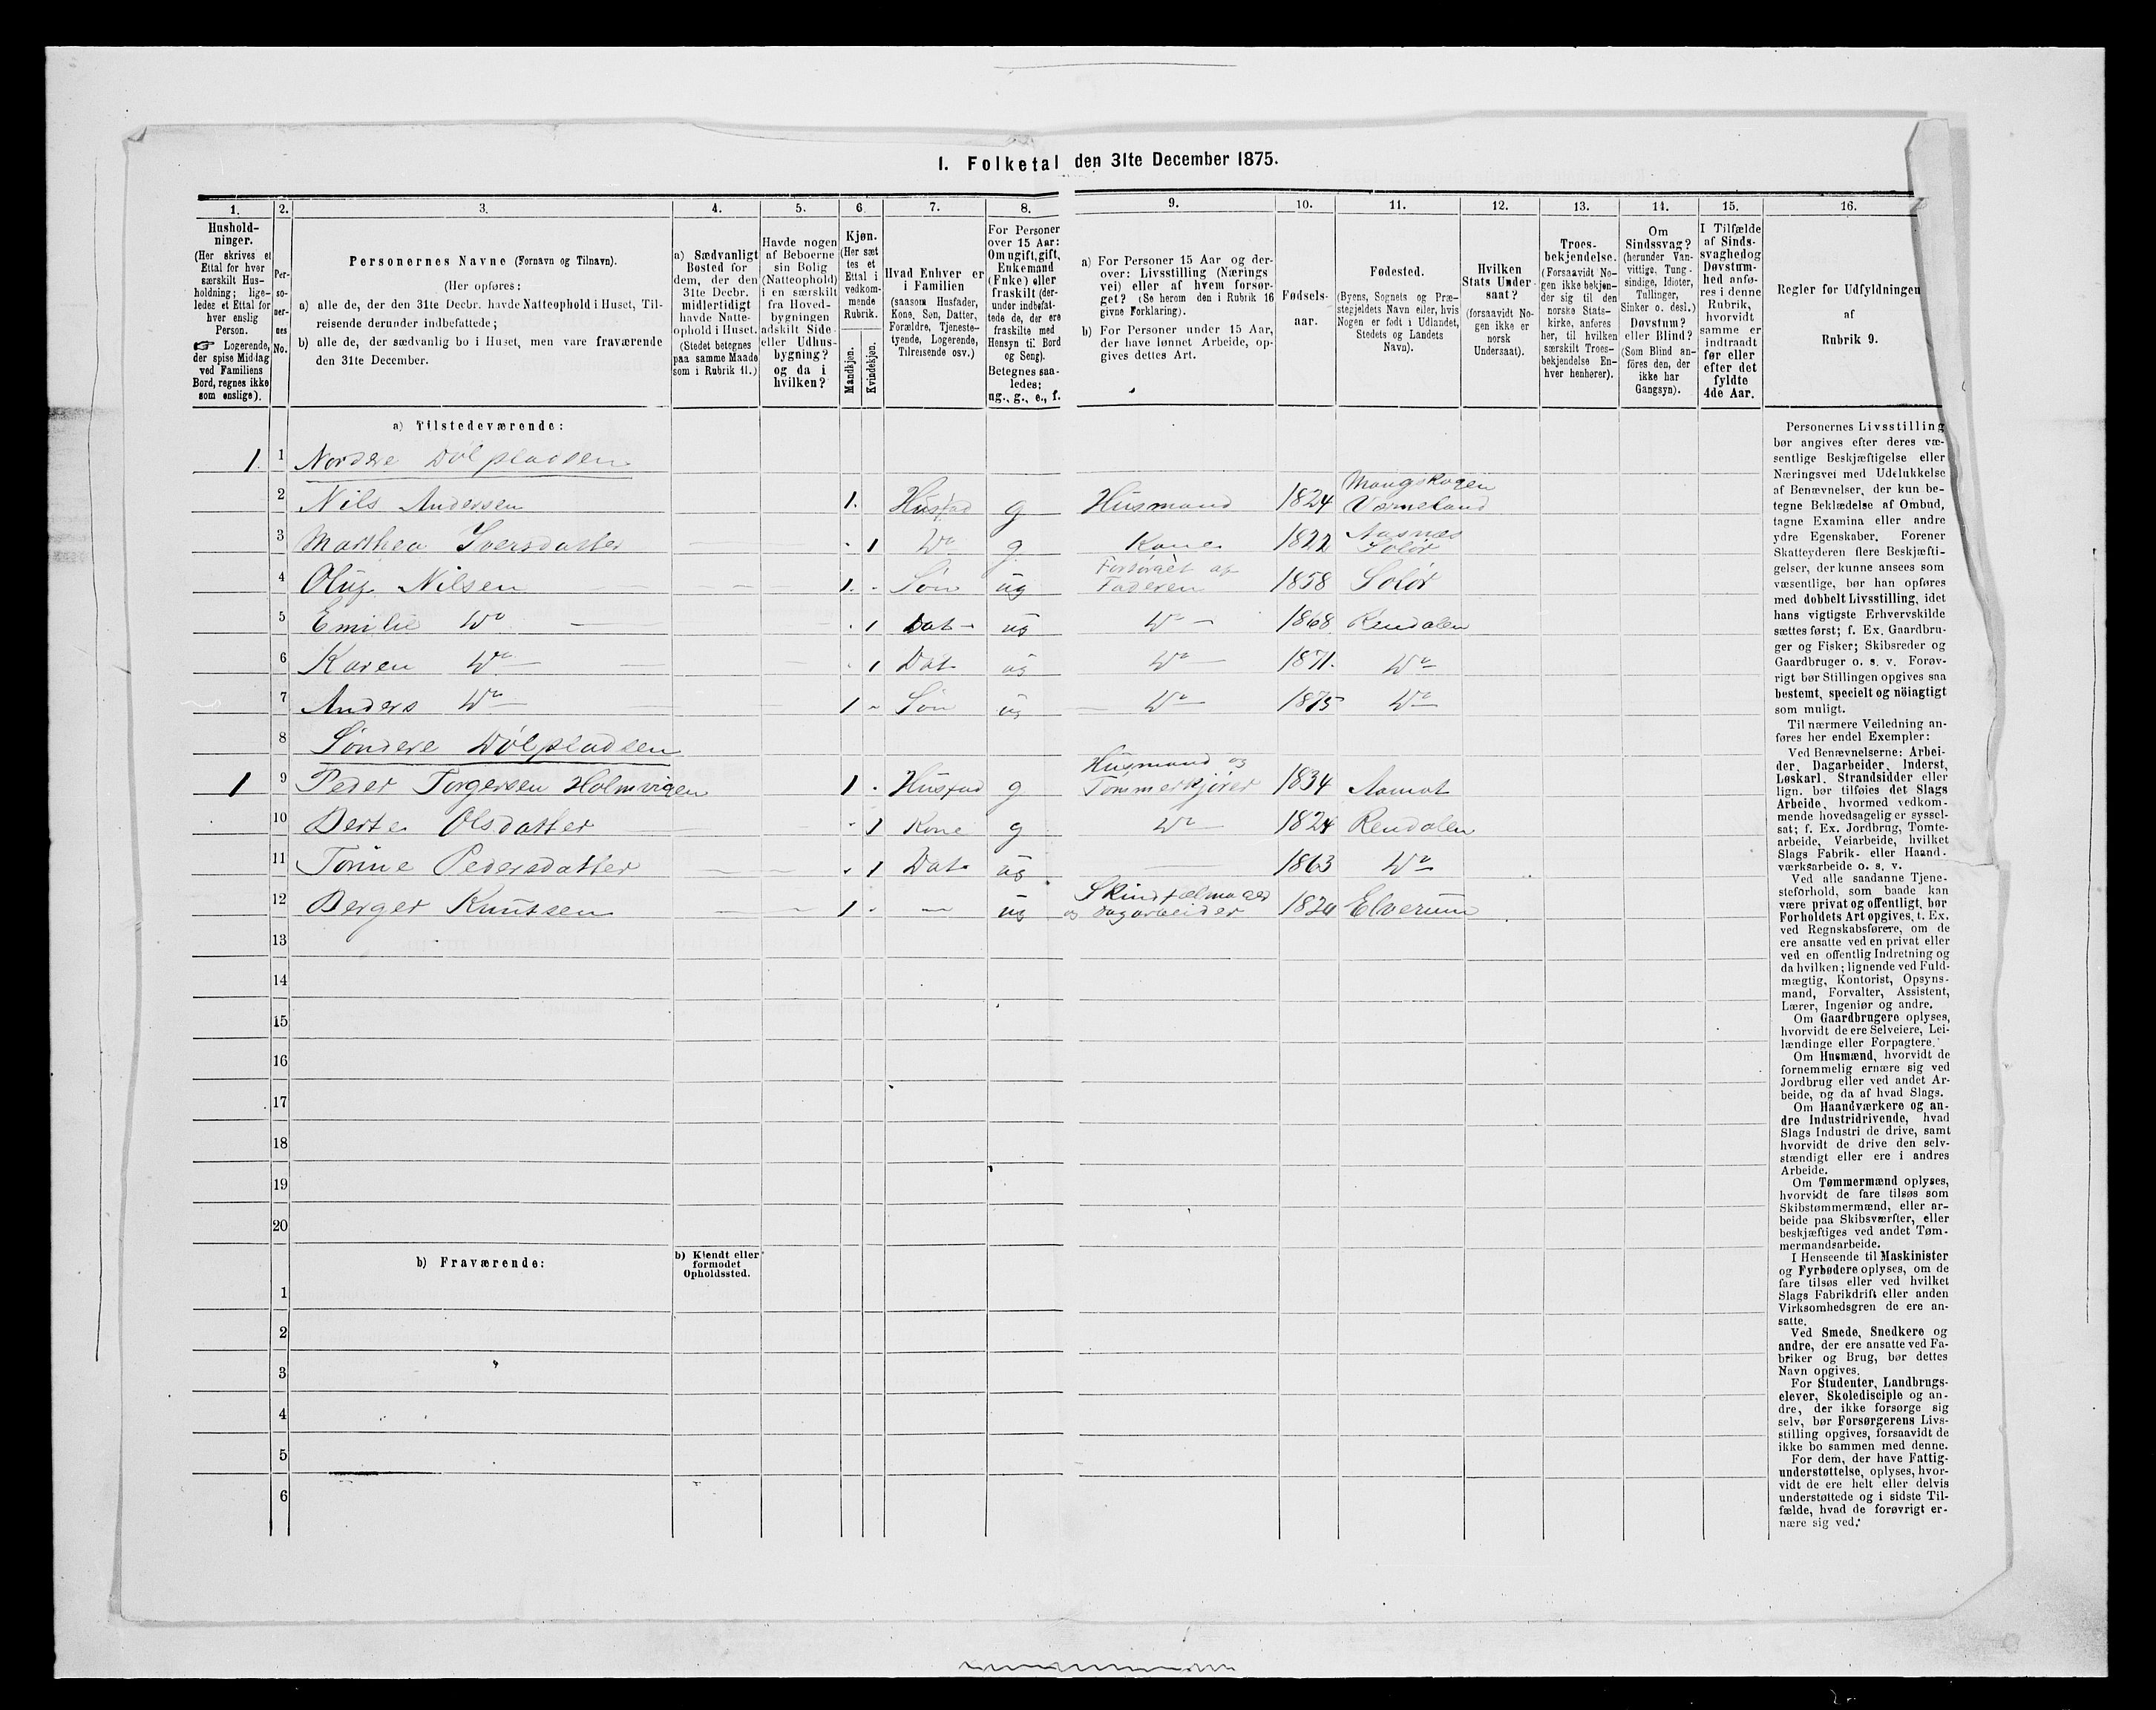 I. Folketal den 31te December 1875.
1. 2. 3. 4. 5. 6. 7. 8. 9. 10. 11. 12. 13. 14. 15. 16.
Hushold-
ninger.
(Her skrives et
Ettal for hver
særskilt Hus-
holdning; lige-
ledes et Ettal for
hver enslig
Person.
☞ Logerende,
der spise Middag
ved Familiens
Bord, regnes ikke
som enslige).
Per-
so-
ner-
nes
No.
Personernes Navne (Fornavn og Tilnavn).
(Her opføres:
a) alle de, der den 31te Decbr. havde Natteophold i Huset, Til-
reisende derunder indbefattede;
b) alle de, der sædvanlig bo i Huset, men vare fraværende
den 31te December.
a) Sædvanligt
Bosted for
dem, der den
31te Decbr.
midlertidigt
havde Natte-
ophold i Huset.
(Stedet betegnes
paa samme Maade
som i Rubrik 11.)
Havde nogen
af Beboerne
sin Bolig
(Natteophold)
i en særskilt
fra Hoved-
bygningen
adskilt Side-
eller Udhus-
bygning?
og da i
hvilken?
Kjøn.
(Her sæt
tes et
Ettal i
vedkom-
mende
Rubrik.
Mandkjøn.
Kvindekjøn.
Hvad Enhver er
i Familien
(saasom Husfader,
Kone, Søn, Datter,
Forældre, Tjeneste-
tyende, Logerende,
Tilreisende osv.)
For Personer
over 15 Aar:
Om ugift, gift,
Enkemand
(Enke) eller
fraskilt (der-
under indbefat-
tede de, der ere
fraskilte med
Hensyn til Bord
og Seng).
Betegnes saa-
ledes:
ug., g., e., f.
a) For Personer 15 Aar og der-
over: Livsstilling (Nærings
vei) eller af hvem forsør-
get? (Se herom den i Rubrik 16
givne Forklaring).
b) For Personer under 15 Aar,
der have lønnet Arbeide, op-
gives dettes Art.
Fødsels-
aar.
Fødested.
(Byens, Sognets og Præ-
stegjeldets Navn eller, hvis
Nogen er født i Udlandet,
Stedets og Landets
Navn).
Hvilken
Stats Under-
saat?
(forsaavidt No-
gen ikke er
norsk
Undersaat).
Troes-
bekjendelse.
(Forsaavidt No-
gen ikke bekjen-
der sig til den
norske Stats-
kirke, anføres
her, til hvilken
særskilt Troes-
bekjendelse En-
hver henhører).
Om
Sindssvag?
(herunder Van-
vittige, Tung-
sindige, Idioter,
Tullinger,
Sinker o. desl.)
Døvstum?
eller Blind?
(Som Blind an-
føres den, der
ikke har
Gangsyn).
I Tilfælde
af Sinds-
svaghed og
Døvstum-
hed anfø-
res i denne
Rubrik,
hvorvidt
samme er
indtraadt
før eller
efter det
fyldte
4de Aar.
Regler for Udfyldningen
af
Rubrik 9.
a) Tilstedeværende:
1. 1 Nordre Dölpladsen
2 Nils Andersen 1. Husfad g Husmand 1824 Mangskogen Värmeland
3 Marthea Iversdatter . 1 Do g. Kone 1822 Aasnæs Solør
4 Oluf Nilsen 1. . Søn ug Forsörget af Faderen 1858 Solör
5 Emilie Do . 1 Dat ug Do 1868 Rendalen
6 Karen Do . 1 Dat ug Do 1871. Do
7 Anders Do 1 Søn ug Do 1875 Do
8 Söndere Dölpladsen
1 9 Peder Torgersen Holmvigen 1 . Husfad g Husmand og Tömmerkjörer 1834 Aamot
10 Berte Olsdatter . 1 Kone g Do 1824 Rendalen
11 Torine Pedersdatter . 1 Dat ug 1863 Do
12 Berger Knutsen 1 . ug Skindfælmager og Dagarbeider 1820 Elverum
13
14
15
16
17
18
19
20
b) Fraværende:
b) Kjendt eller
formodet
Opholdssted.
1
2
3
4
5
6
Personernes Livsstilling
bør angives efter deres væ-
sentlige Beskjæftigelse eller
Næringsvei med Udelukkelse
af Benævnelser, der kun be-
tegne Beklædelse af Ombud,
tagne Examina eller andre
ydre Egenskaber. Forener
Skatteyderen flere Beskjæfti-
gelser, der kunne ansees som
væsentlige, bør han opføres
med dobbelt Livsstilling, idet
hans vigtigste Erhvervskilde
sættes først; f. Ex. Gaardbru-
ger og Fisker; Skibsreder og
Gaardbruger o. s. v. Forøv-
rigt bør Stillingen opgives saa
bestemt, specielt og nöiagtigt
som muligt.
Til nærmere Veiledning an-
føres her endel Exempler:
Ved Benævnelserne: Arbei-
der, Dagarbeider, Inderst,
Løskarl, Strandsidder eller
lign. bør tilføies det Slags
Arbeide, hvormed vedkom-
mende hovedsagelig er syssel-
sat; f. Ex. Jordbrug, Tomte-
arbeide, Veiarbeide, hvilket
Slags Fabrik- eller Haand-
værksarbeide o. s. v.
Ved alle saadanne Tjene-
steforhold, som baade kan
være privat og offentligt, bør
Forholdets Art opgives, t. Ex.
ved Regnskabsførere, om de
ere ansatte ved en privat eller
ved en offentlig Indretning og
da hvilken; lignende ved Fuld-
mægtig, Kontorist, Opsyns-
mand, Forvalter, Assistent,
Lærer, Ingeniør og andre.
Om Gaardbrugere oplyses,
hvorvidt de ere Selveiere, Lei-
lændinge eller Forpagtere.
Om Husmænd, hvorvidt de
fornemmelig ernære sig ved
Jordbrug eller ved andet Ar-
beide, og da af hvad Slags.
Om Haandværkere og an-
dre Industridrivende, hvad
Slags Industri de drive, samt
hvorvidt de drive den selv-
stændigt eller ere i andres
Arbeide.
Om Tømmermænd oplyses,
hvorvidt de fare tilsøs som
Skibstømmermænd, eller ar-
beide paa Skibsværfter, eller
beskjæftiges ved andet Tøm-
mermandsarbeide.
I Henseende til Maskinister
og Fyrbødere oplyses, om de
fare tilsøs eller ved hvilket
Slags Fabrikdrift eller anden
Virksomhedsgren de ere an-
satte.
Ved Smede, Snedkere og
andre, der ere ansatte ved Fa-
briker og Brug, bør dettes
Navn opgives.
For Studenter, Landbrugs-
elever, Skoledisciple og an-
dre, der ikke forsørge sig
selv, bør Forsørgerens Livs-
stilling opgives, forsaavidt de
ikke bo sammen med denne.
For dem, der have Fattig-
understøttelse, oplyses, hvor-
vidt de ere helt eller delvis
understøttede og i sidste Til-
fælde, hvad de forøvrigt er-
nære sig ved.